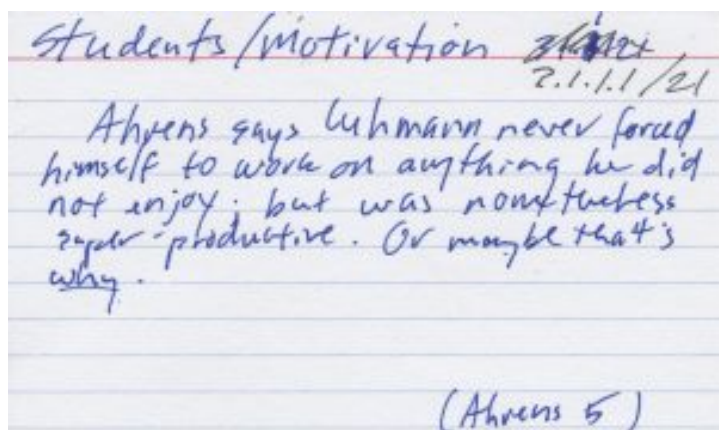 Students/Motivation
2.1.1.1/21
Ahrens says Luhmann never forced
himself to work on anything he did
not enjoy. but was nonetheless
super-productive. Or maybe that's
why.
(Ahrens 5)